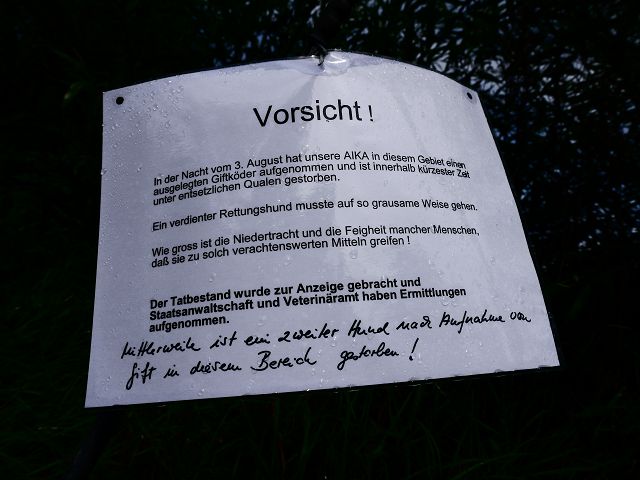 Vorsicht !
In der Nacht vom 3. August hat unsere AIKA in diesem Gebiet einen
ausgelegten Giftköder aufgenommen und ist innerhalb kürzester Zeit
unter entsetzlichen Qualen gestorben.
Ein verdienter Rettungshund musste auf so grausame Weise gehen.
Wie gross ist die Niedertracht und die Feigheit mancher Menschen,
daß sie zu solch verachtenswerten Mitteln greifen !
Der Tatbestand wurde zur Anzeige gebracht und
Staatsanwaltschaft und Veterinäramt haben Ermittlungen
aufgenommen.
Mittlerweile ist ein zweiter Hund nach Aufnahme von
Gift in diesem Bereich gestorben !